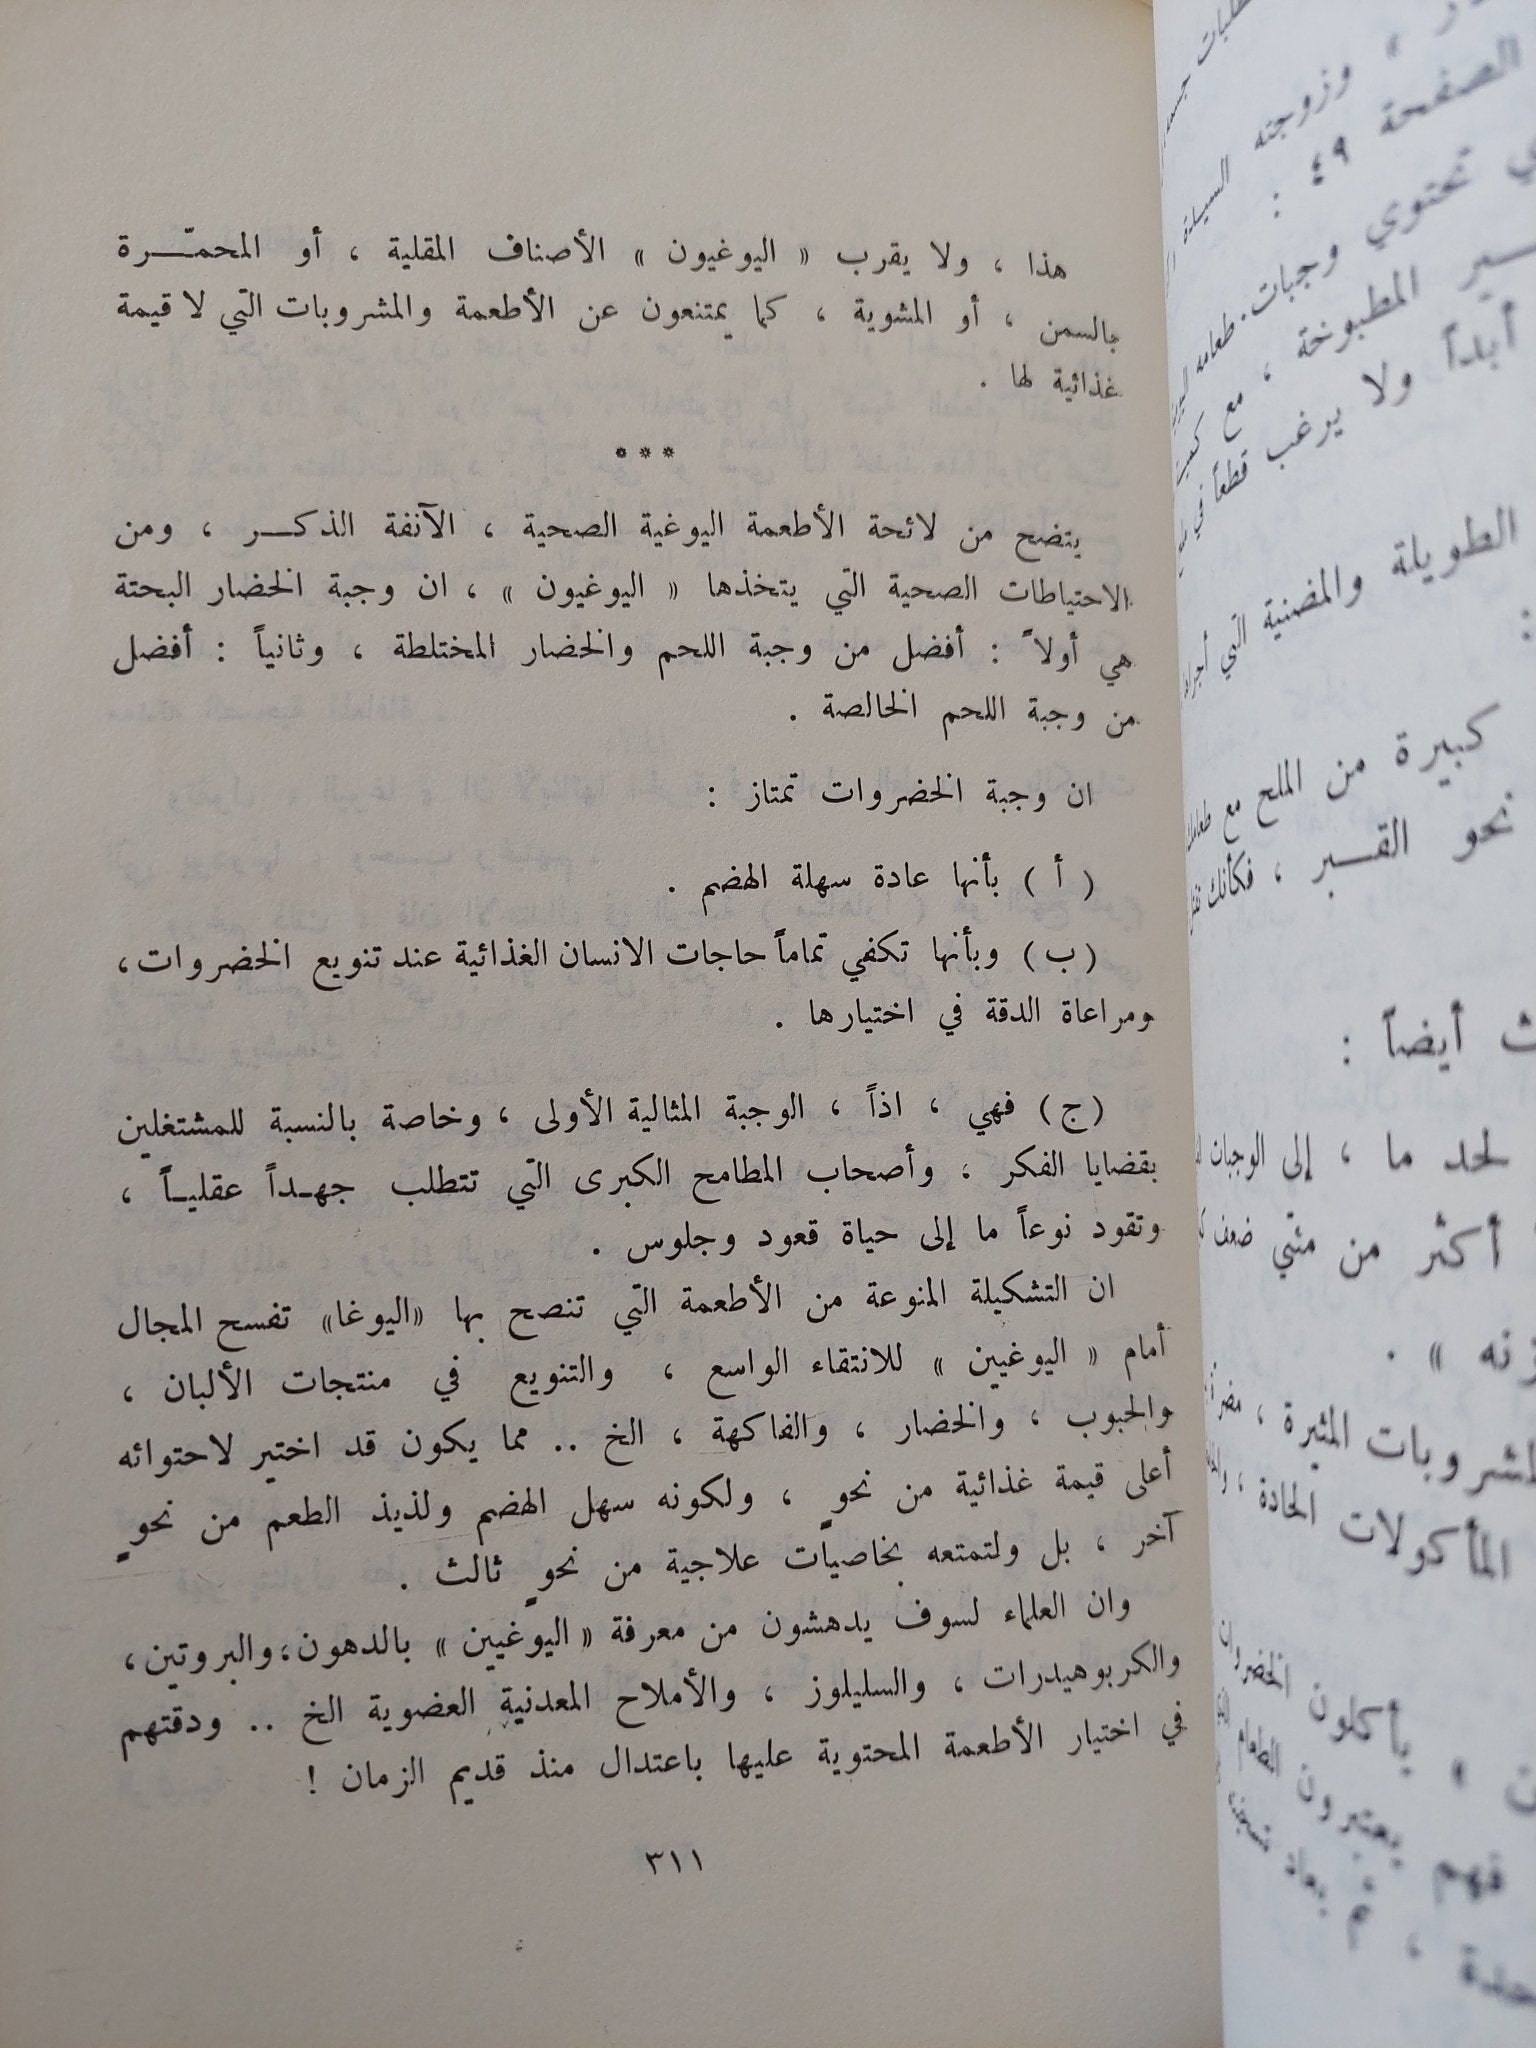 هذا ، ولا يقرب « اليوغيون » الأصناف المقلية ، أو المحمّـــرة
بالسمن ، أو المشوية ، كما يمتنعون عن الأطعمة والمشروبات التي لا قيمة
غذائية لها .
* * *
يتضح من لائحة الأطعمة اليوغية الصحية ، الآنفة الذكــر ، ومن
الاحتياطات الصحية التي يتخذها « اليوغيون » ، ان وجبة الخضار البحتة
هي أولاً : أفضل من وجبة اللحم والخضار المختلطة ، وثانياً : أفضل
من وجبة اللحم الخالصة .
ان وجبة الخضروات تمتاز :
( أ ) بأنها عادة سهلة الهضم .
( ب ) وبأنها تكفي تماماً حاجات الانسان الغذائية عند تنويع الخضروات ،
ومراعاة الدقة في اختيارها .
( ج ) فهي ، اذاً ، الوجبة المثالية الأولى ، وخاصة بالنسبة للمشتغلين
بقضايا الفكر ، وأصحاب المطامح الكبرى التي تتطلب جهـداً عقليـاً ،
وتقود نوعاً ما إلى حياة قعود وجلوس .
ان التشكيلة المنوعة من الأطعمة التي تنصح بها «اليوغا» تفسح المجال
أمام « اليوغيين » للانتقاء الواسع ، والتنويع في منتجات الألبان ،
والحبوب ، والخضار ، والفاكهة ، الخ .. مما يكون قد اختير لاحتوائه
أعلى قيمة غذائية من نحوٍ ، ولكونه سهل الهضم ولذيذ الطعم من نحوٍ
آخر ، بل ولتمتعه بخاصيات علاجية من نحوٍ ثالث .
وان العلماء لسوف يدهشون من معرفة « اليوغيين » بالدهون ، والبروتين ،
والكربوهيدرات ، والسليلوز ، والأملاح المعدنية العضوية الخ .. ودقتهم
في اختيار الأطعمة المحتوية عليها باعتدال منذ قديم الزمان !
٣١١
وزوجته السيدة
الصفحة ٤٩ :
تحتوي وجبات طعامه
المطبوخة ، مع
أبداً ولا يرغب قطعاً في
الطويلة والمضنية التي
كبيرة من الملح مع طعامك
نحو القــبر ، فكأنك
أيضاً :
لحد ما ، إلى الوجبات
أكثر من مئتي ضعف
المثيرة ،
المأكولات الحادة ،
يأكلون الخضروات
فهم يعتبرون الطعام